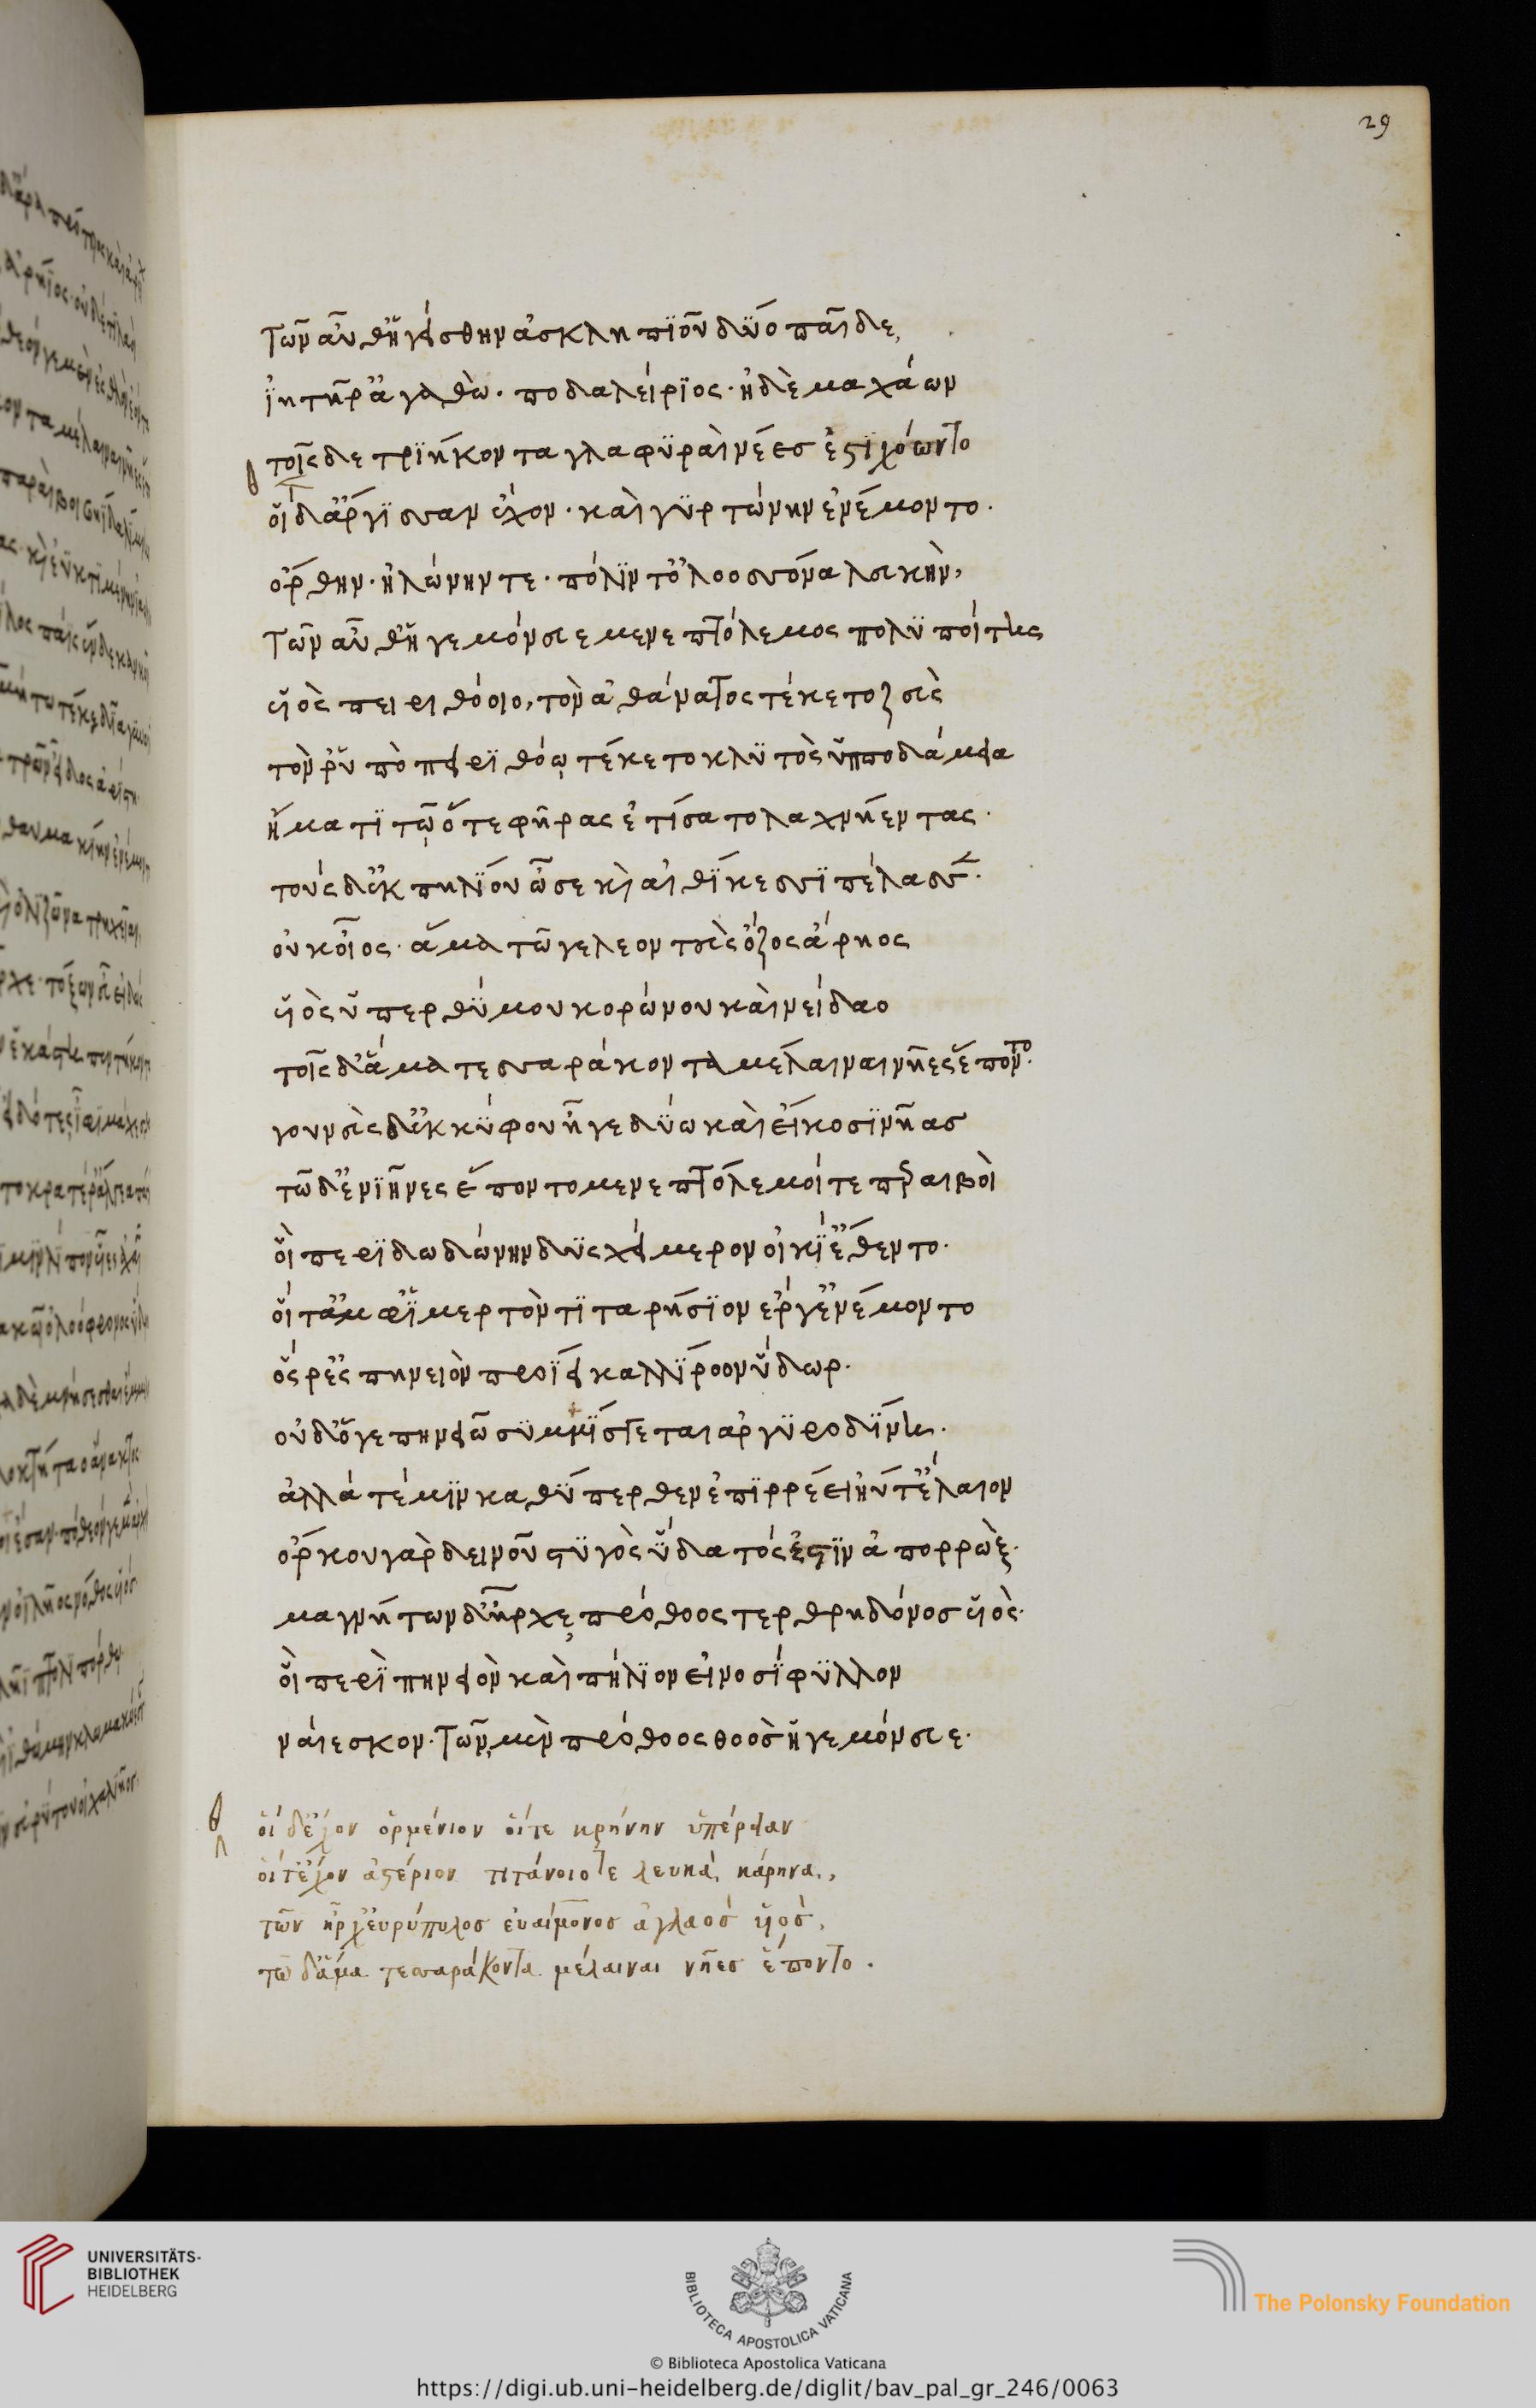 29
Τῶν αὖθ' ἡγείσθην ἀσκληπϊοῦ δύο παῖδε,
ἰητῆρ' ἀγαθὼ· ποδαλείριος· ἠδὲ μαχάων
τοῖς δε τριήκοντα γλαφυραὶ νέεσ ἐστιχόωντο
οἳ δ' ἄργισσαν ἔχον· καὶ γυρτώνην ἐνέμοντο·
ὄρθην· ἠλώνην τε· πόλιν τ' ὀλοοσσόνα λευκὴν,
Τῶν αὖθ' ἡγεμόνευε μενεπτόλεμος πολυποίτης
υἱὸς πειριθόοιο, τὸν ἀθάνατος τέκετο ζεὺς
τὸν ῥ' ὑπὸ πειριθόῳ τέκετο κλυτὸς ἱπποδάμεια
ἤματι τῷ ὅτε φῆρας ἐτίσατο λαχνήεντας·
τοὺς δ' ἐκ πηλίου ὦσε κὶ αἰθίκεσσι πέλασσεν·
οὐκ οἶος· ἅμα τῶ γε λεοντεὺς ὄζος ἄρηος
υἱὸς ὑπερθύμου κορώνου καινείδαο
τοῖς δ' ἅμα τεσσαράκοντα μέλαιναι νῆες ἕποντο·
γουνεὺς δ' ἐκ κύφου ἦγε δύω καὶ εἴκοσι νῆας
τῶ δ' ἐνιῆνες ἕποντο μενεπτόλεμοί τε πεῤαιβοὶ
οἳ περὶ δωδώνην δυσχείμερον οἰκί' ἔθεντο·
οἵ τ' ἀμφ' ἱμερτὸν τιταρήσιον ἔργ' ἐνέμοντο
ὅς ῥ' ἐς πηνειὸν προΐει καλλίροον ὕδωρ·
οὐδ' ὅγε πηνειῶ συμμίσγεται ἀργυροδίνη·
ἀλλά τέ μιν καθύπερθεν ἐπιρρέει ἠύτ' ἔλαιον
ὅρκου γὰρ δεινοῦ στυγὸς ὕδατός ἐστιν ἀπορρὼξ·
μαγνήτων δ' ἦρχε πρόθοος τενθρηδόνος υἱὸς·
οἳ περὶ πηνειὸν καὶ πήλιον εἰνοσίφυλλον
ναίεσκον· Τῶν μὲν πρόθοος θοὸς ἡγεμόνευε·
οἵ δ' ἔχον ὀρμένιον οἵτε κρήνην ὑπέρειαν
οἵ τ' ἔχον ἀστέριον τιτάνοιο τε λευκὰ κάρηνα,
τῶν ἦρχ' εὐρύπυλος εὐαίμονος ἀγλαὸς υἱὸς,
τῶ δ' ἅμα τεσσαράκοντα μέλαιναι νῆες ἕποντο.
UNIVERSITÄTS-
BIBLIOTHEK
HEIDELBERG
BIBLIOTECA APOSTOLICA VATICANA
The Polonsky Foundation
© Biblioteca Apostolica Vaticana
https://digi.ub.uni-heidelberg.de/diglit/bav_pal_gr_246/0063